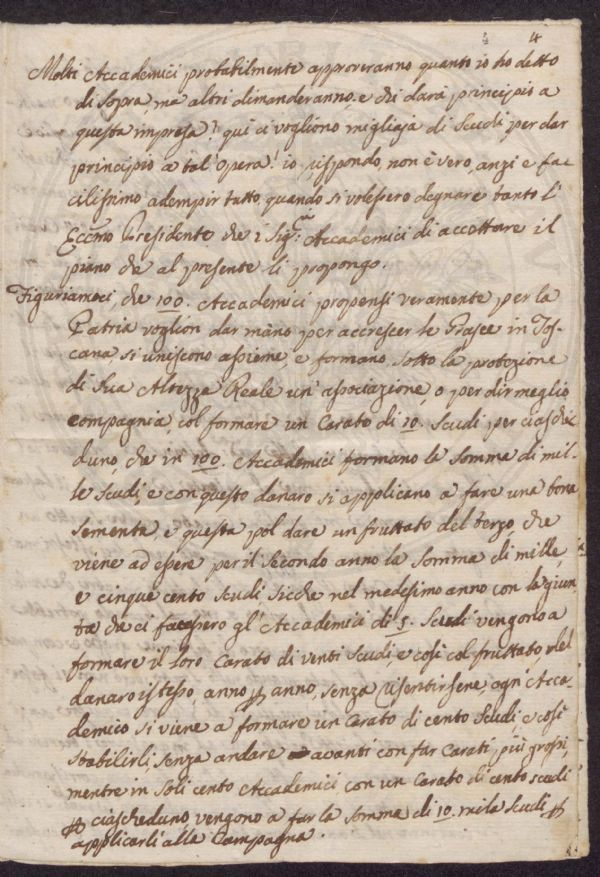 4 4
Molti Accademici probabilmente approveranno quanto io ho detto
di sopra, ma altri dimanderanno, e chi darà principio a
questa impresa? qui ci vogliono migliaja di Scudi, per dar
principio a tal'opera! io rispondo, non è vero, anzi e fa-
cilissimo adempir tutto, quando si volessero degnare tanto l'
Eccmo Presidente che i Sigri Accademici di accettare il
piano che al presente li propongo.
Figuriamoci, che 100. Accademici propensi veramente per la
Patria voglion dar mano per accrescer le Grasce in Tos-
cana, si uniscono assieme, e formano, sotto la protezione
di Sua Altezze Reale un'associazione, o per dir meglio
compagnia, col formare un Carato di 10. Scudi per ciasche-
duno, che in 100. Accademici formano la Somma di mil-
le Scudi, e con questo danaro si applicano a fare una bona
Sementa, e questa pol dare un fruttato del terzo, che
viene ad essere per il Secondo anno la Somma di mille,
e cinque cento Scudi sicche nel medesimo anno con la giun-
ta che ci facessero gl'Accademici di 5. Scudi vengono a
formare il loro Carato di venti Scudi, e così col fruttato, e del
danaro istesso, anno p anno, senza risentirsene, ogn'Acca-
demico si viene a formare un Carato di cento Scudi, e così
stabilirli, senza andare avanti con far Carati più grossi
mentre in soli cento Accademici con un Carato di cento scudi
p ciascheduno, vengono a far la Somma di 10. mila Scudi p
applicarli alla Campagna.